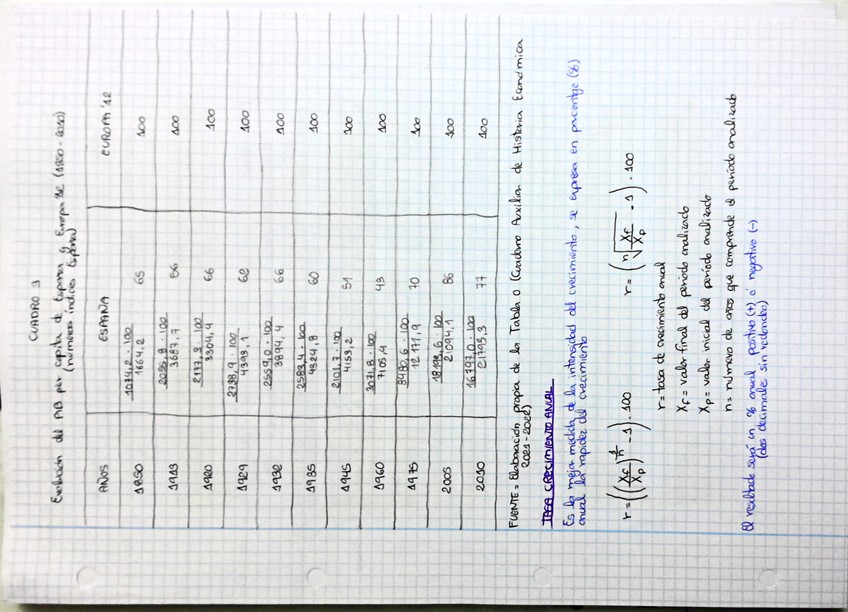 CUADRO 3
Evolución del PIB per cápita de España y Europa 12 (1850-2010)
(números índices España)
AÑOS ESPAÑA EUROPA '12
1850 1074,2 · 100 / 1664,2 65 100
1913 2056,8 · 100 / 3687,7 56 100
1920 2177,3 · 100 / 3304,4 66 100
1929 2738,9 · 100 / 4393,1 62 100
1932 2559,0 · 100 / 3894,4 66 100
1935 2583,4 · 100 / 4324,8 60 100
1945 2102,7 · 100 / 4153,2 51 100
1960 3071,8 · 100 / 7105,4 43 100
1975 8480,6 · 100 / 12171,9 70 100
2005 18198,6 · 100 / 21094,1 86 100
2010 16797,0 · 100 / 21705,3 77 100
FUENTE = Elaboración propia de la Tabla 0 (Cuaderno Auxiliar de Historia Económica
2021-2022)
TASA CRECIMIENTO ANUAL
Es la mejor medida de la intensidad del crecimiento, se expresa en porcentaje (%)
anual la rapidez del crecimiento
r = ((XF/XP)^1/n - 1) · 100 r = (n√XF/XP - 1) · 100
r = tasa de crecimiento anual
XF = valor final del período analizado
XP = valor inicial del período analizado
n = número de años que comprende el período analizado
El resultado será un % anual positivo (+) o negativo (-)
(dos decimales sin redondeo)